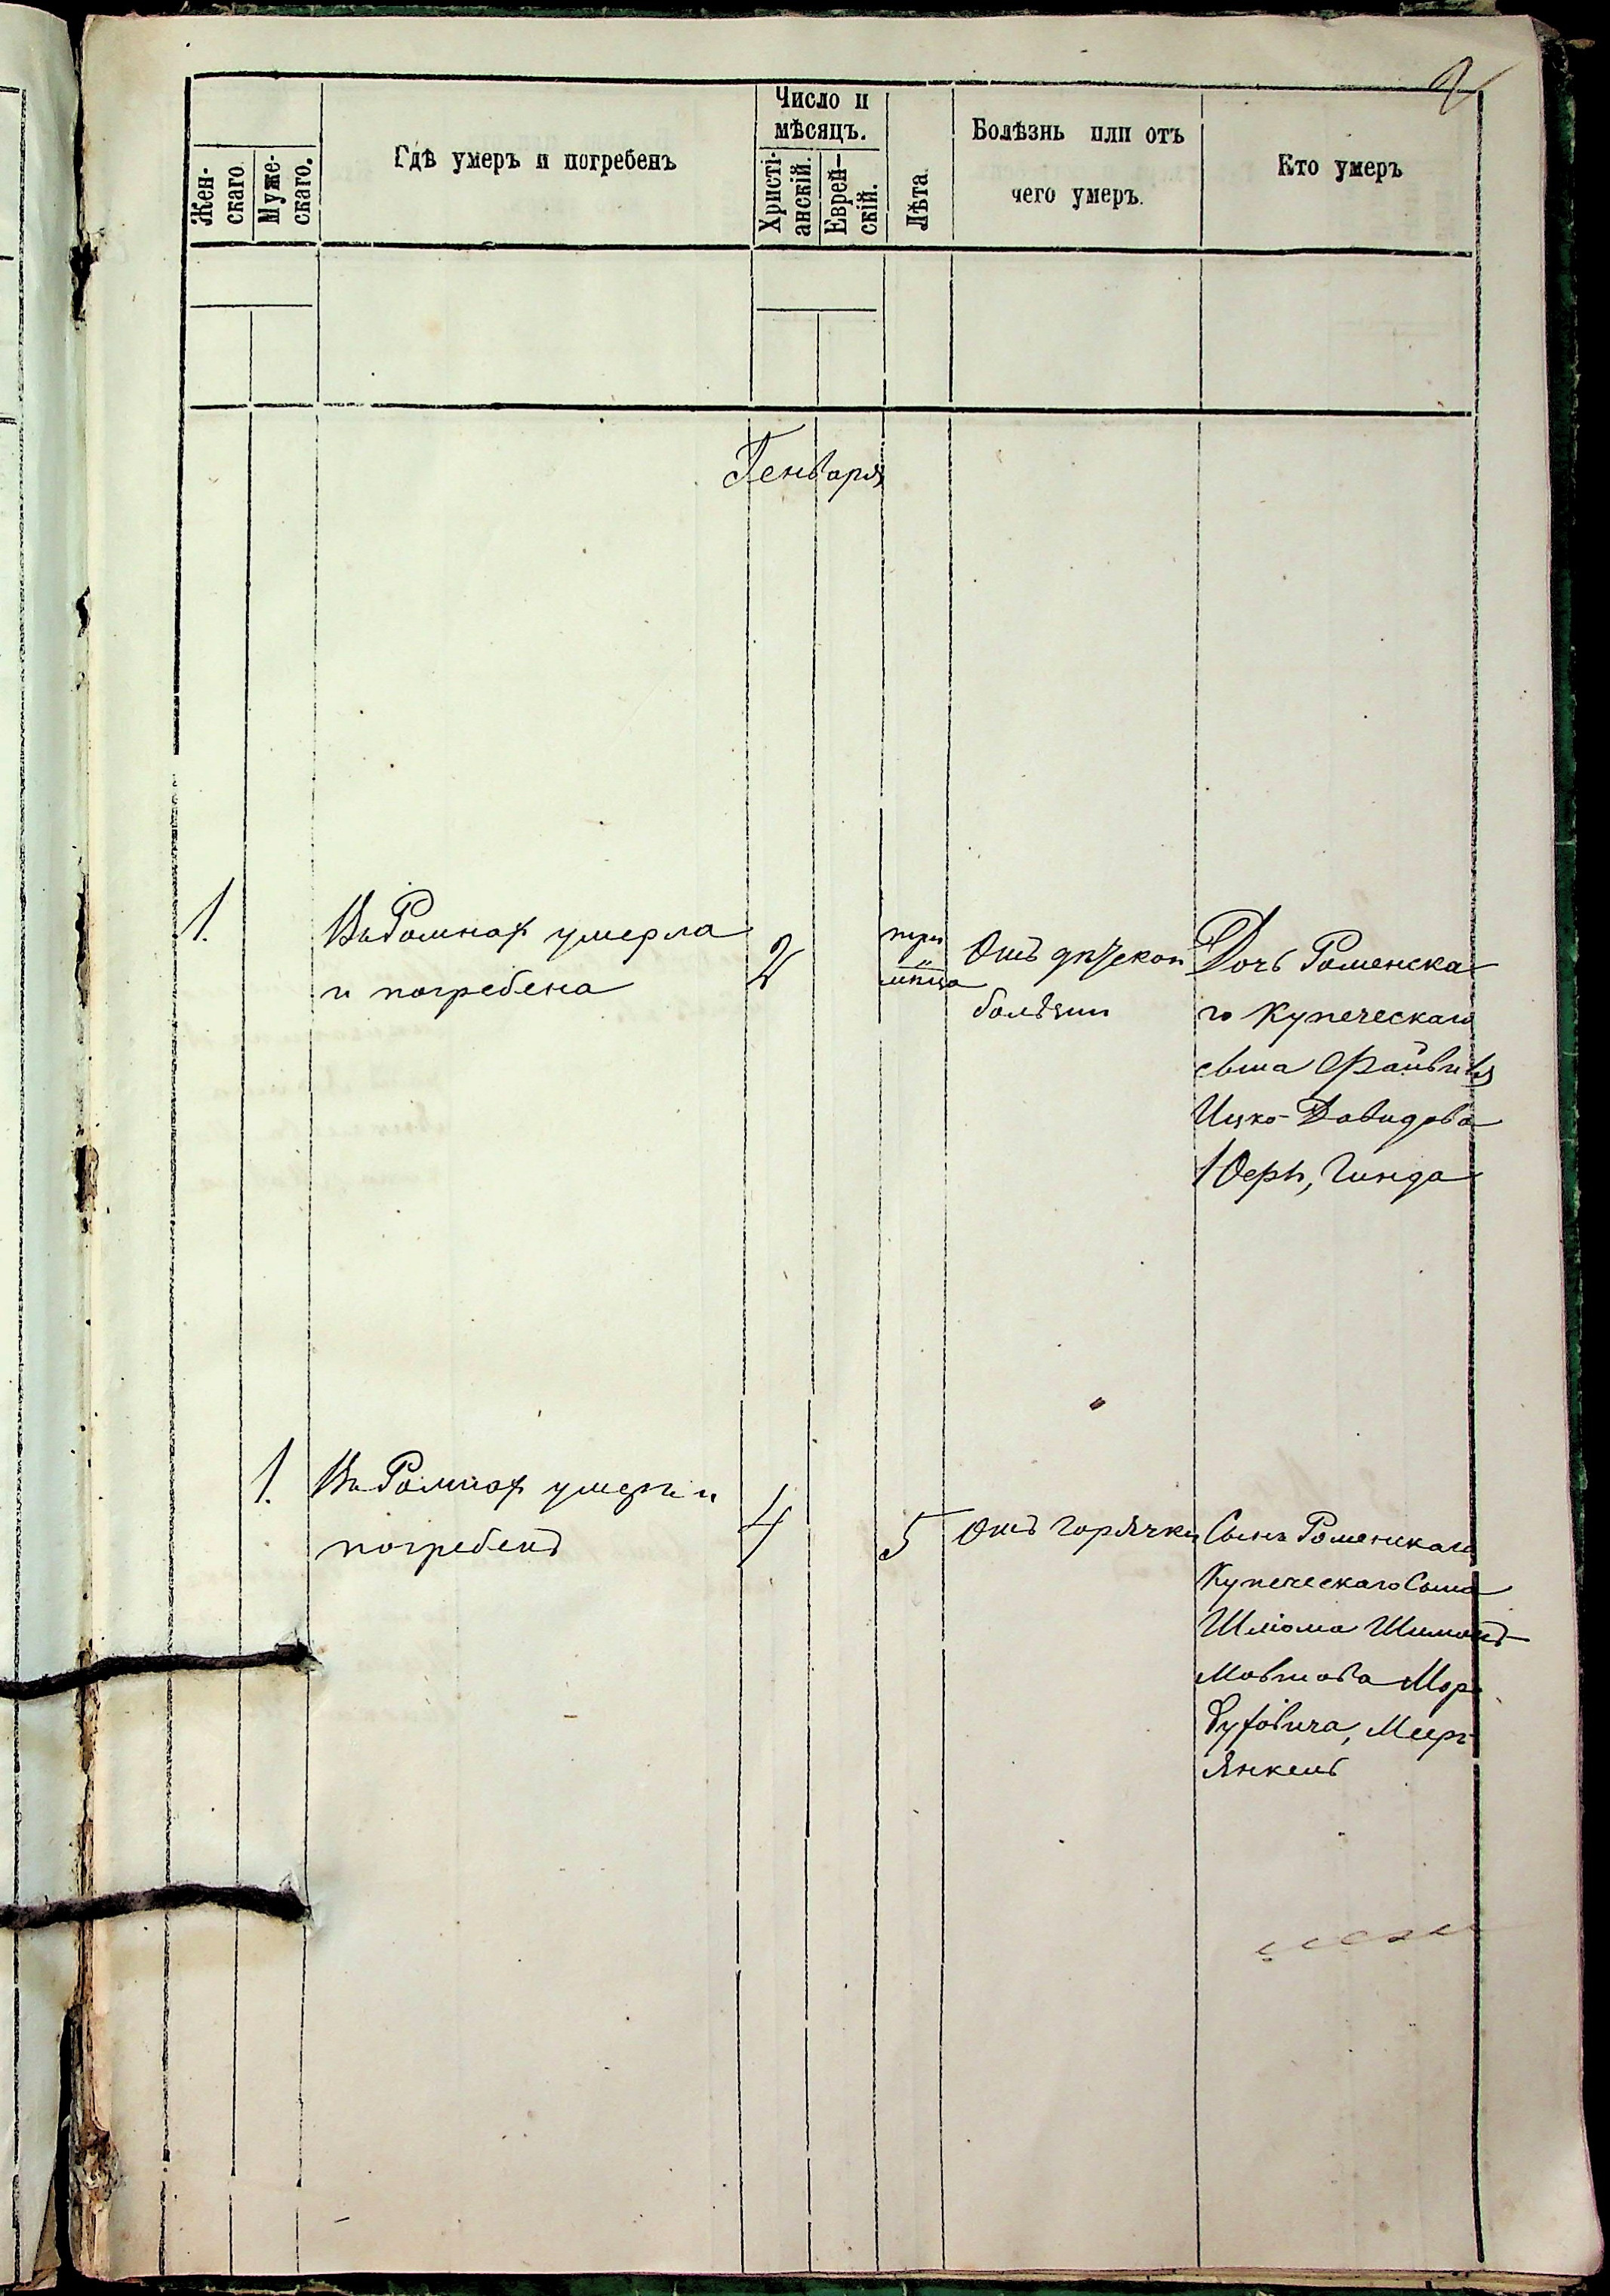 2
Жен-
скаго
Муже-
скаго.
Гдѣ умеръ и погребенъ
Число и
мѣсяцъ.
Христі-
анскій.
Еврей-
скій.
Лѣта
Болѣзнь или отъ
чего умеръ.
Кто умеръ
Генваря
1.
Въ Ромнах умерла
и погребена
2
три
м-ца
Отъ дѣтской
болѣзни
Дочь Роменска
го Купеческаго
сына Файвиша
Ицко-Давидова
Юеръ, Гинда
1.
Въ Ромнах умеръ и
погребенъ
4
5
Отъ горячки
Сынъ Роменскаго
Купеческаго Сына
Шліома Шимонъ
Мовшова Мор
духовича, Мееръ
Янкель